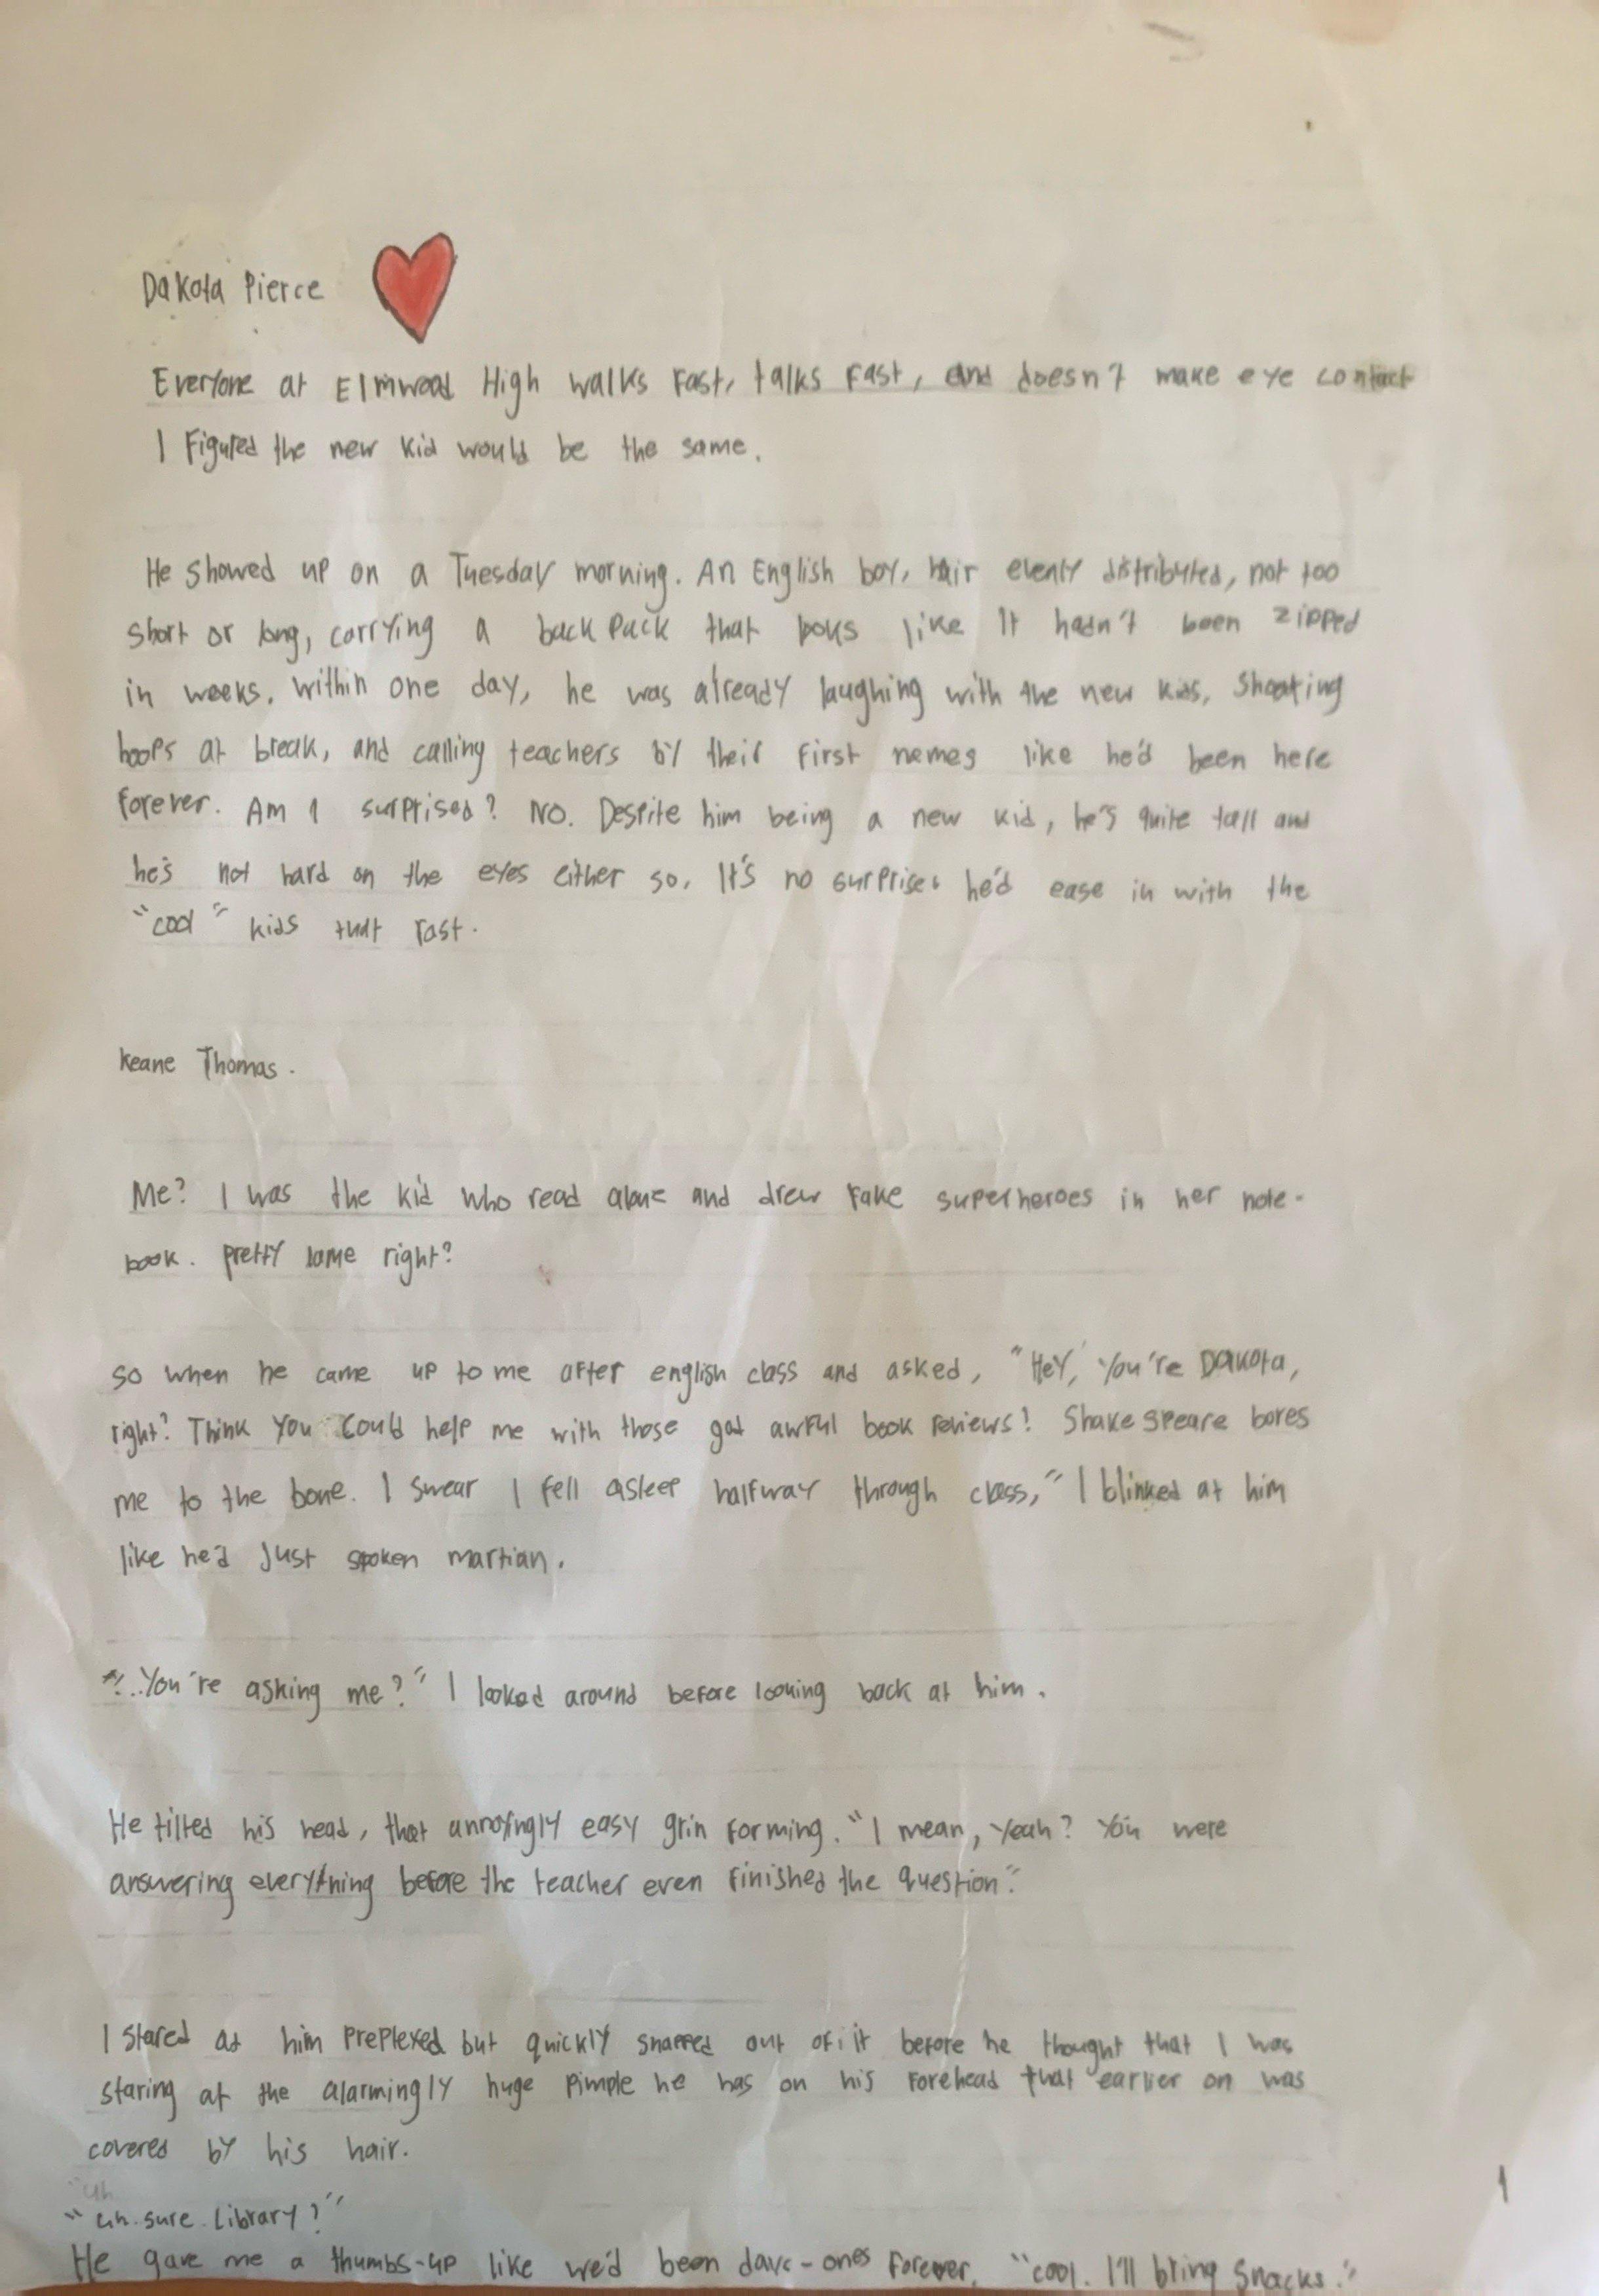 Dakota Pierce
Everyone at Elmwood High walks fast, talks fast, and doesn't make eye contact
I Figured the new kid would be the same.
He showed up on a Tuesday morning. An English boy, hair evenly distributed, not too
short or long, carrying a back pack that looks like it hadn't been zipped
in weeks. Within one day, he was already laughing with the new kids, shooting
hoops at break, and calling teachers by their first names like he'd been here
forever. Am I surprised? No. Despite him being a new kid, he's quite tall and
he's not hard on the eyes either so. It's no surprise he'd ease in with the
"cool" kids that fast.
Keane Thomas.
Me? I was the kid who read alone and drew fake superheroes in her note-
book. pretty lame right?
so when he came up to me after english class and asked, "Hey, You're Dakota,
right? Think you could help me with those god awful book reviews? Shakespeare bores
me to the bone. I swear I fell asleep halfway through class," I blinked at him
like he'd just spoken martian.
"..You're asking me?" I looked around before looking back at him.
He tilted his head, that annoyingly easy grin forming. "I mean, yeah? You were
answering everything before the teacher even finished the question."
I stared at him preplexed but quickly snapped out of it before he thought that I was
staring at the alarmingly huge pimple he has on his forehead that earlier on was
covered by his hair.
"uh. sure. Library?"
He gave me a thumbs-up like we'd been - ones forever. "cool. I'll bring snacks."
1